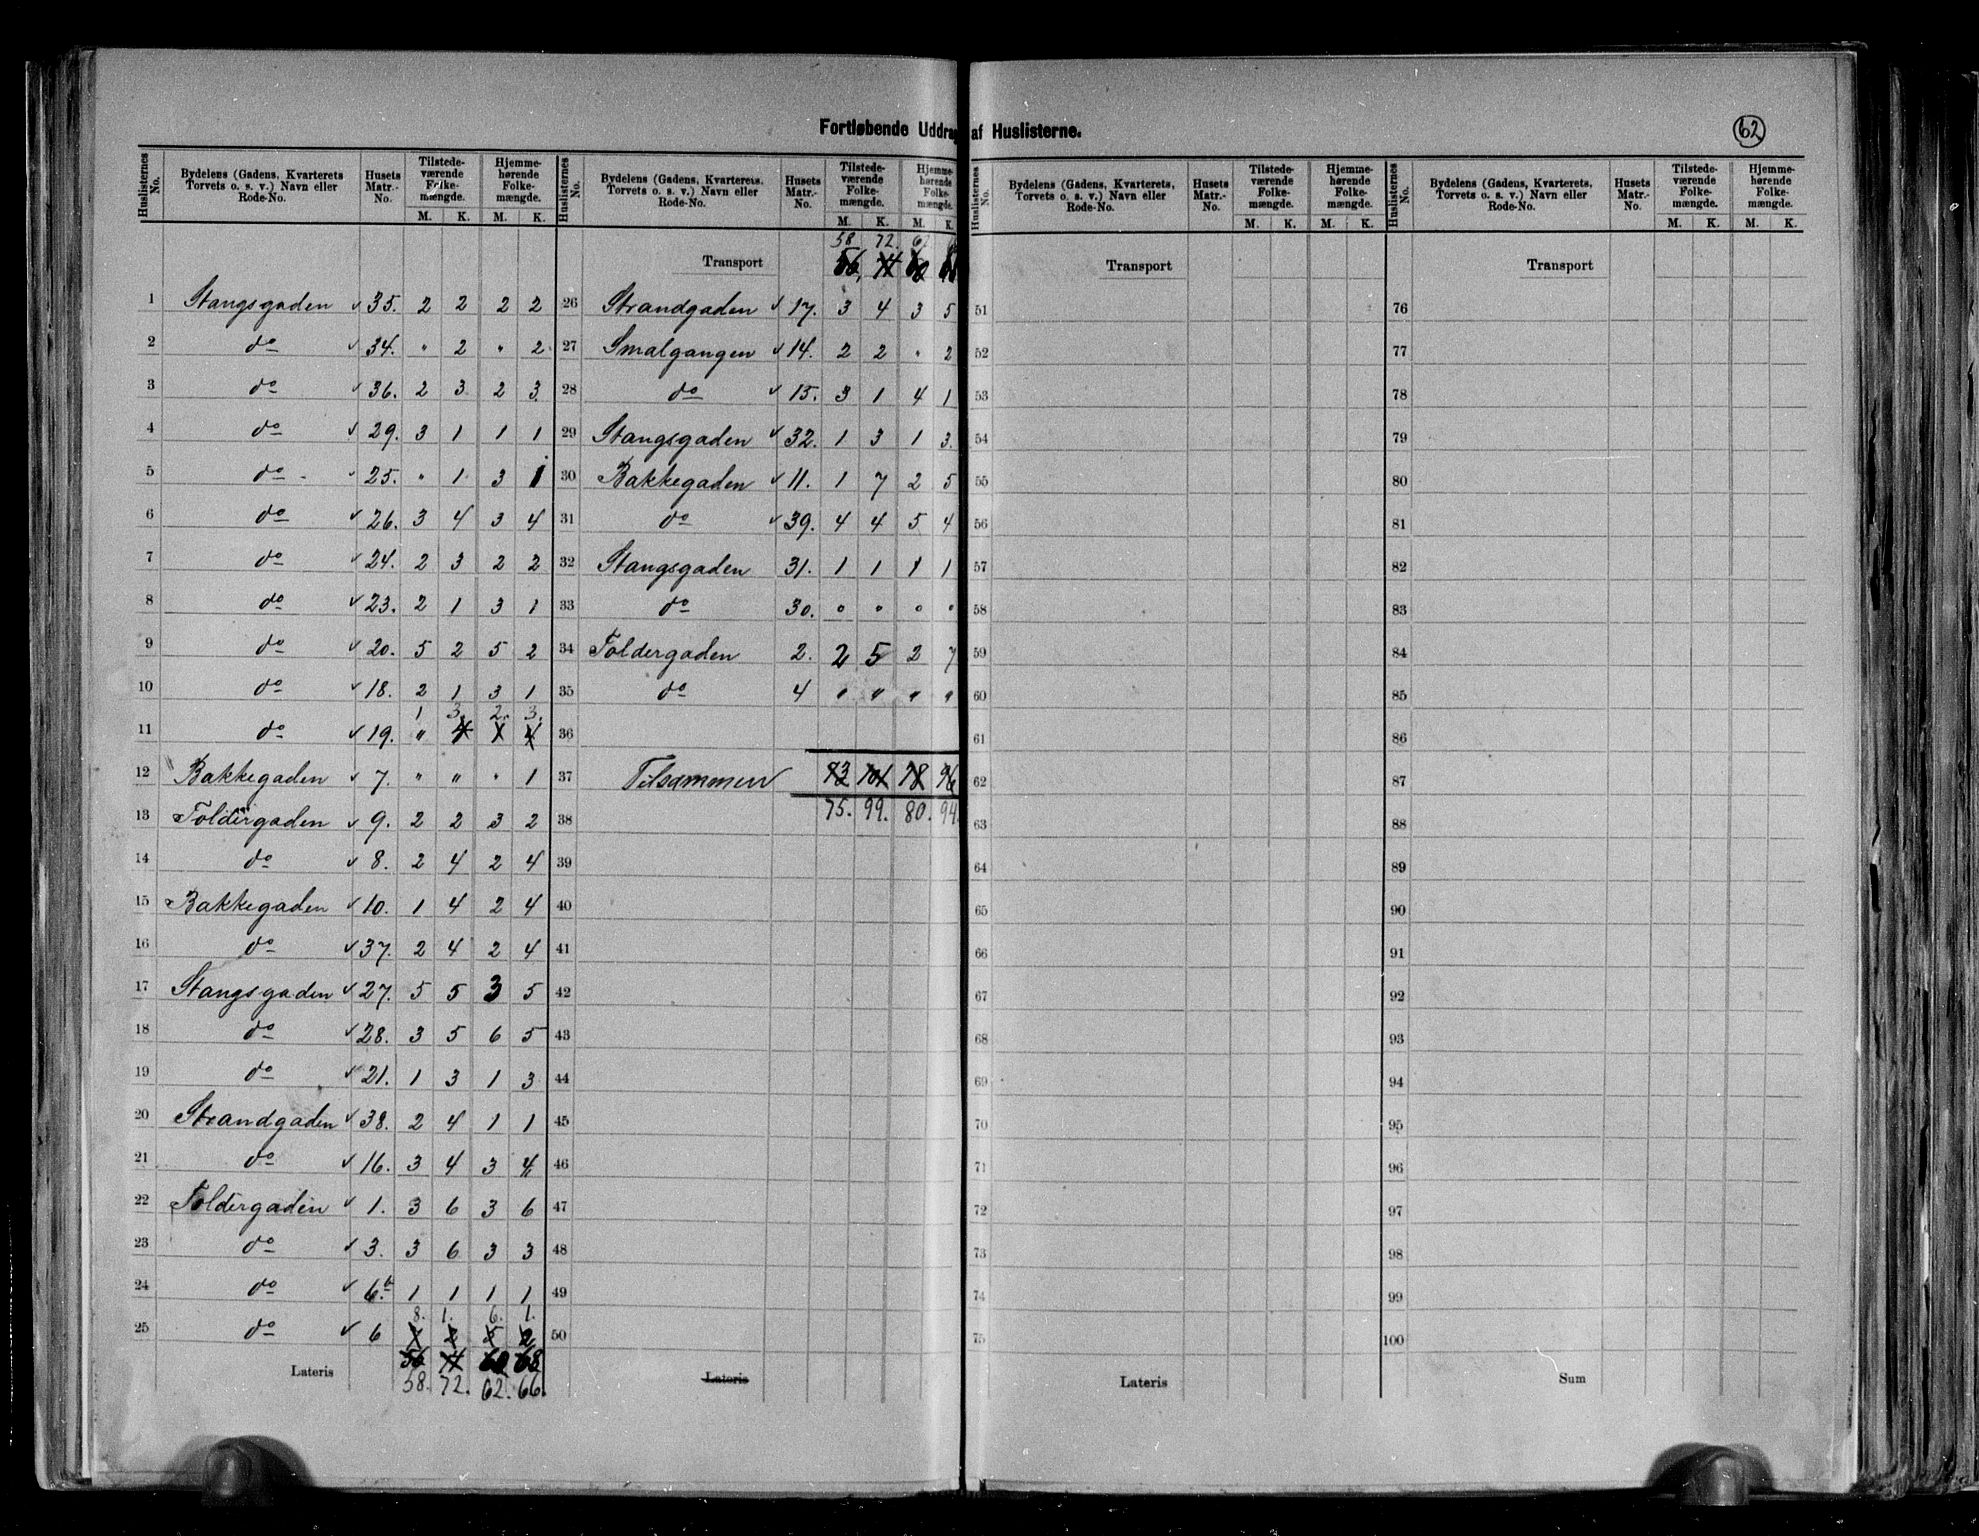 Fortløbende Uddrag af Huslisterne.
62
Huslisternes No. | Bydelens (Gadens, Kvarterets Torvets o. s. v.) Navn eller Rode-No. | Husets Matr.-No. | Tilstedeværende Folkemængde. M. K. | Hjemmehørende Folkemængde. M. K.
1 Stangsgaden √ 35. 2 2 2 2
2 do √ 34. " 2 " 2
3 do √ 36. 2 3 2 3
4 do √ 29. 3 1 1 1
5 do - √ 25. " 1 3 1
6 do √ 26. 3 4 3 4
7 do √ 24. 2 3 2 2
8 do √ 23. 2 1 3 1
9 do √ 20. 5 2 5 2
10 do √ 18. 2 1 3 1
1 3. 2. 3.
11 do √ 19. " 4 1 4
12 Bakkegaden √ 7. " " " 1
13 Toldergaden √ 9. 2 2 3 2
14 do √ 8. 2 4 2 4
15 Bakkegaden √ 10. 1 4 2 4
16 do √ 37. 2 4 2 4
17 Stangsgaden √ 27. 5 5 3 5
18 do √ 28. 3 5 6 5
19 do √ 21. 1 3 1 3
20 Strandgaden √ 38. 2 4 1 1
21 do √ 16. 3 4 3 4
22 Toldergaden √ 1. 3 6 3 6
23 do √ 3. 3 6 3 3
24 do √ 6b 1 1 1 1
8. 1. 6. 1.
25 do √ 6 2 2
Lateris 56 74 60 68
58. 72. 62. 66.
Huslisternes No. | Bydelens (Gadens, Kvarterets, Torvets o. s. v.) Navn eller Rode-No. | Husets Matr.-No. | Tilstedeværende Folkemængde. M. K. | Hjemmehørende Folkemængde. M. K.
58 72. 62
Transport 56, 74 60 68
26 Strandgaden √ 17. 3 4 3 5
27 Smalgangen √ 14. 2 2 " 2
28 do √ 15. 3 1 4 1
29 Stangsgaden √ 32. 1 3 1 3.
30 Bakkegaden √ 11. 1 7 2 5
31 do √ 39. 4 4 5 4
32 Stangsgaden 31. 1 1 1 1
33 do 30. " " " "
34 Toldergaden 2. 2 5 2 7
35 do 4 " " " "
36
37 Tilsammen 73 101 78 96
38 75. 99. 80. 94.
39
40
41
42
43
44
45
46
47
48
49
50
Lateris
Huslisternes No. | Bydelens (Gadens, Kvarterets, Torvets o. s. v.) Navn eller Rode-No. | Husets Matr.-No. | Tilstedeværende Folkemængde. M. K. | Hjemmehørende Folkemængde. M. K.
Transport
51
52
53
54
55
56
57
58
59
60
61
62
63
64
65
66
67
68
69
70
71
72
73
74
75
Lateris
Huslisternes No. | Bydelens (Gadens, Kvarterets, Torvets o. s. v.) Navn eller Rode-No. | Husets Matr.-No. | Tilstedeværende Folkemængde. M. K. | Hjemmehørende Folkemængde. M. K.
Transport
76
77
78
79
80
81
82
83
84
85
86
87
88
89
90
91
92
93
94
95
96
97
98
99
100
Sum